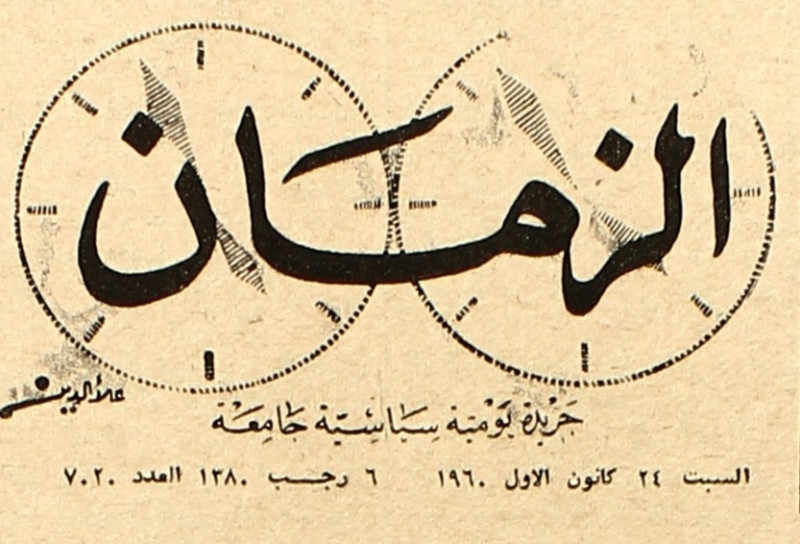 الزمان
علاء الدين
جريدة يومية سياسية جامعة
السبت ٢٤ كانون الاول ١٩٦٠ ٦ رجب ١٣٨٠ العدد ٧٠٢٠